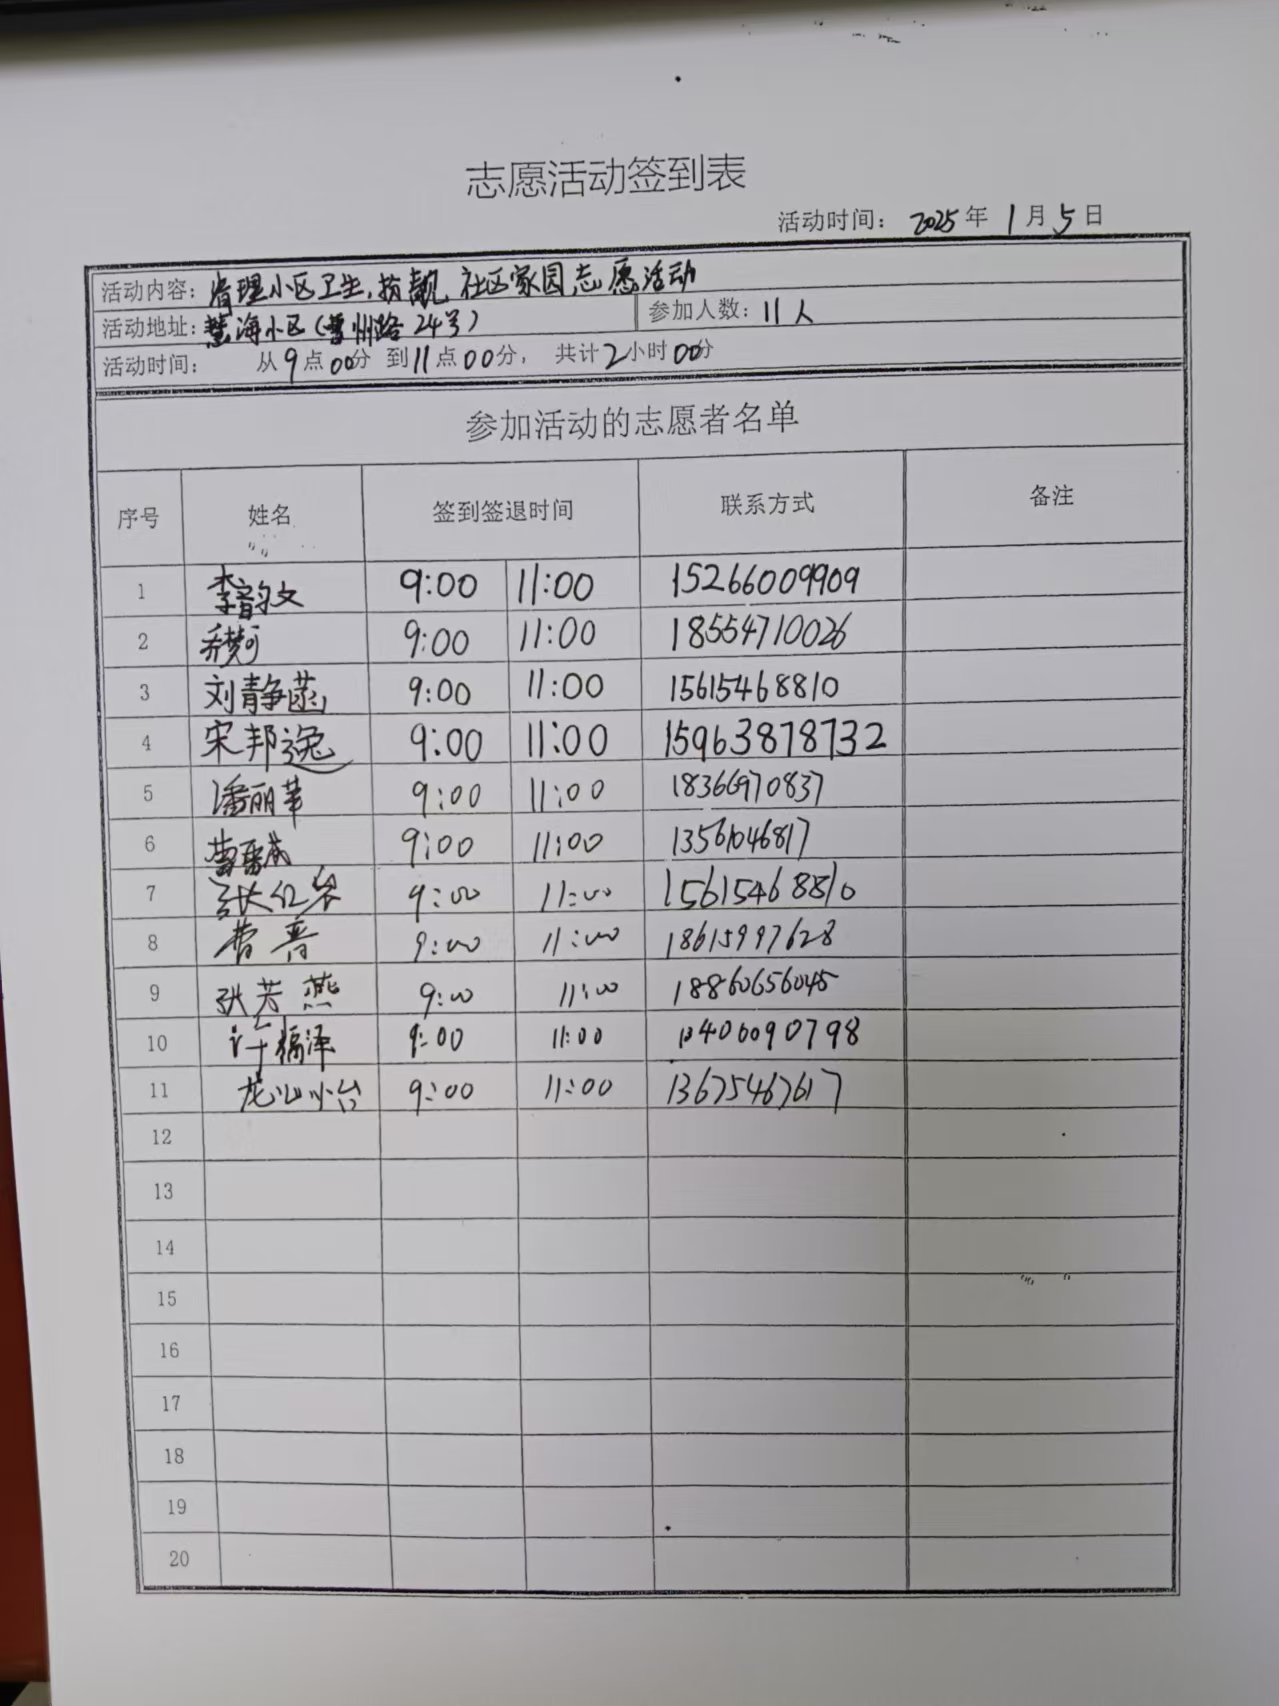 志愿活动签到表
活动时间: 2025年 1月5日
活动内容: 清理小区卫生,扮靓 社区家园志愿活动
活动地址: 慧海小区(曹州路 24号) 参加人数: 11人
活动时间: 从9点00分 到11点00分, 共计2小时00分
参加活动的志愿者名单
序号 姓名 签到签退时间 联系方式 备注
1 李韵文 9:00 11:00 15266009909
2 9:00 11:00 18554710026
3 刘静菡 9:00 11:00 15615468810
4 宋邦逸 9:00 11:00 15963878732
5 潘丽苹 9:00 11:00 18366970837
6 9:00 11:00 13561046817
7 9:00 11:00 15615468810
8 曹香 9:00 11:00 18615997628
9 张芳燕 9:00 11:00 18860656045
10 9:00 11:00 13400090798
11 9:00 11:00 13675467617
12
13
14
15
16
17
18
19
20